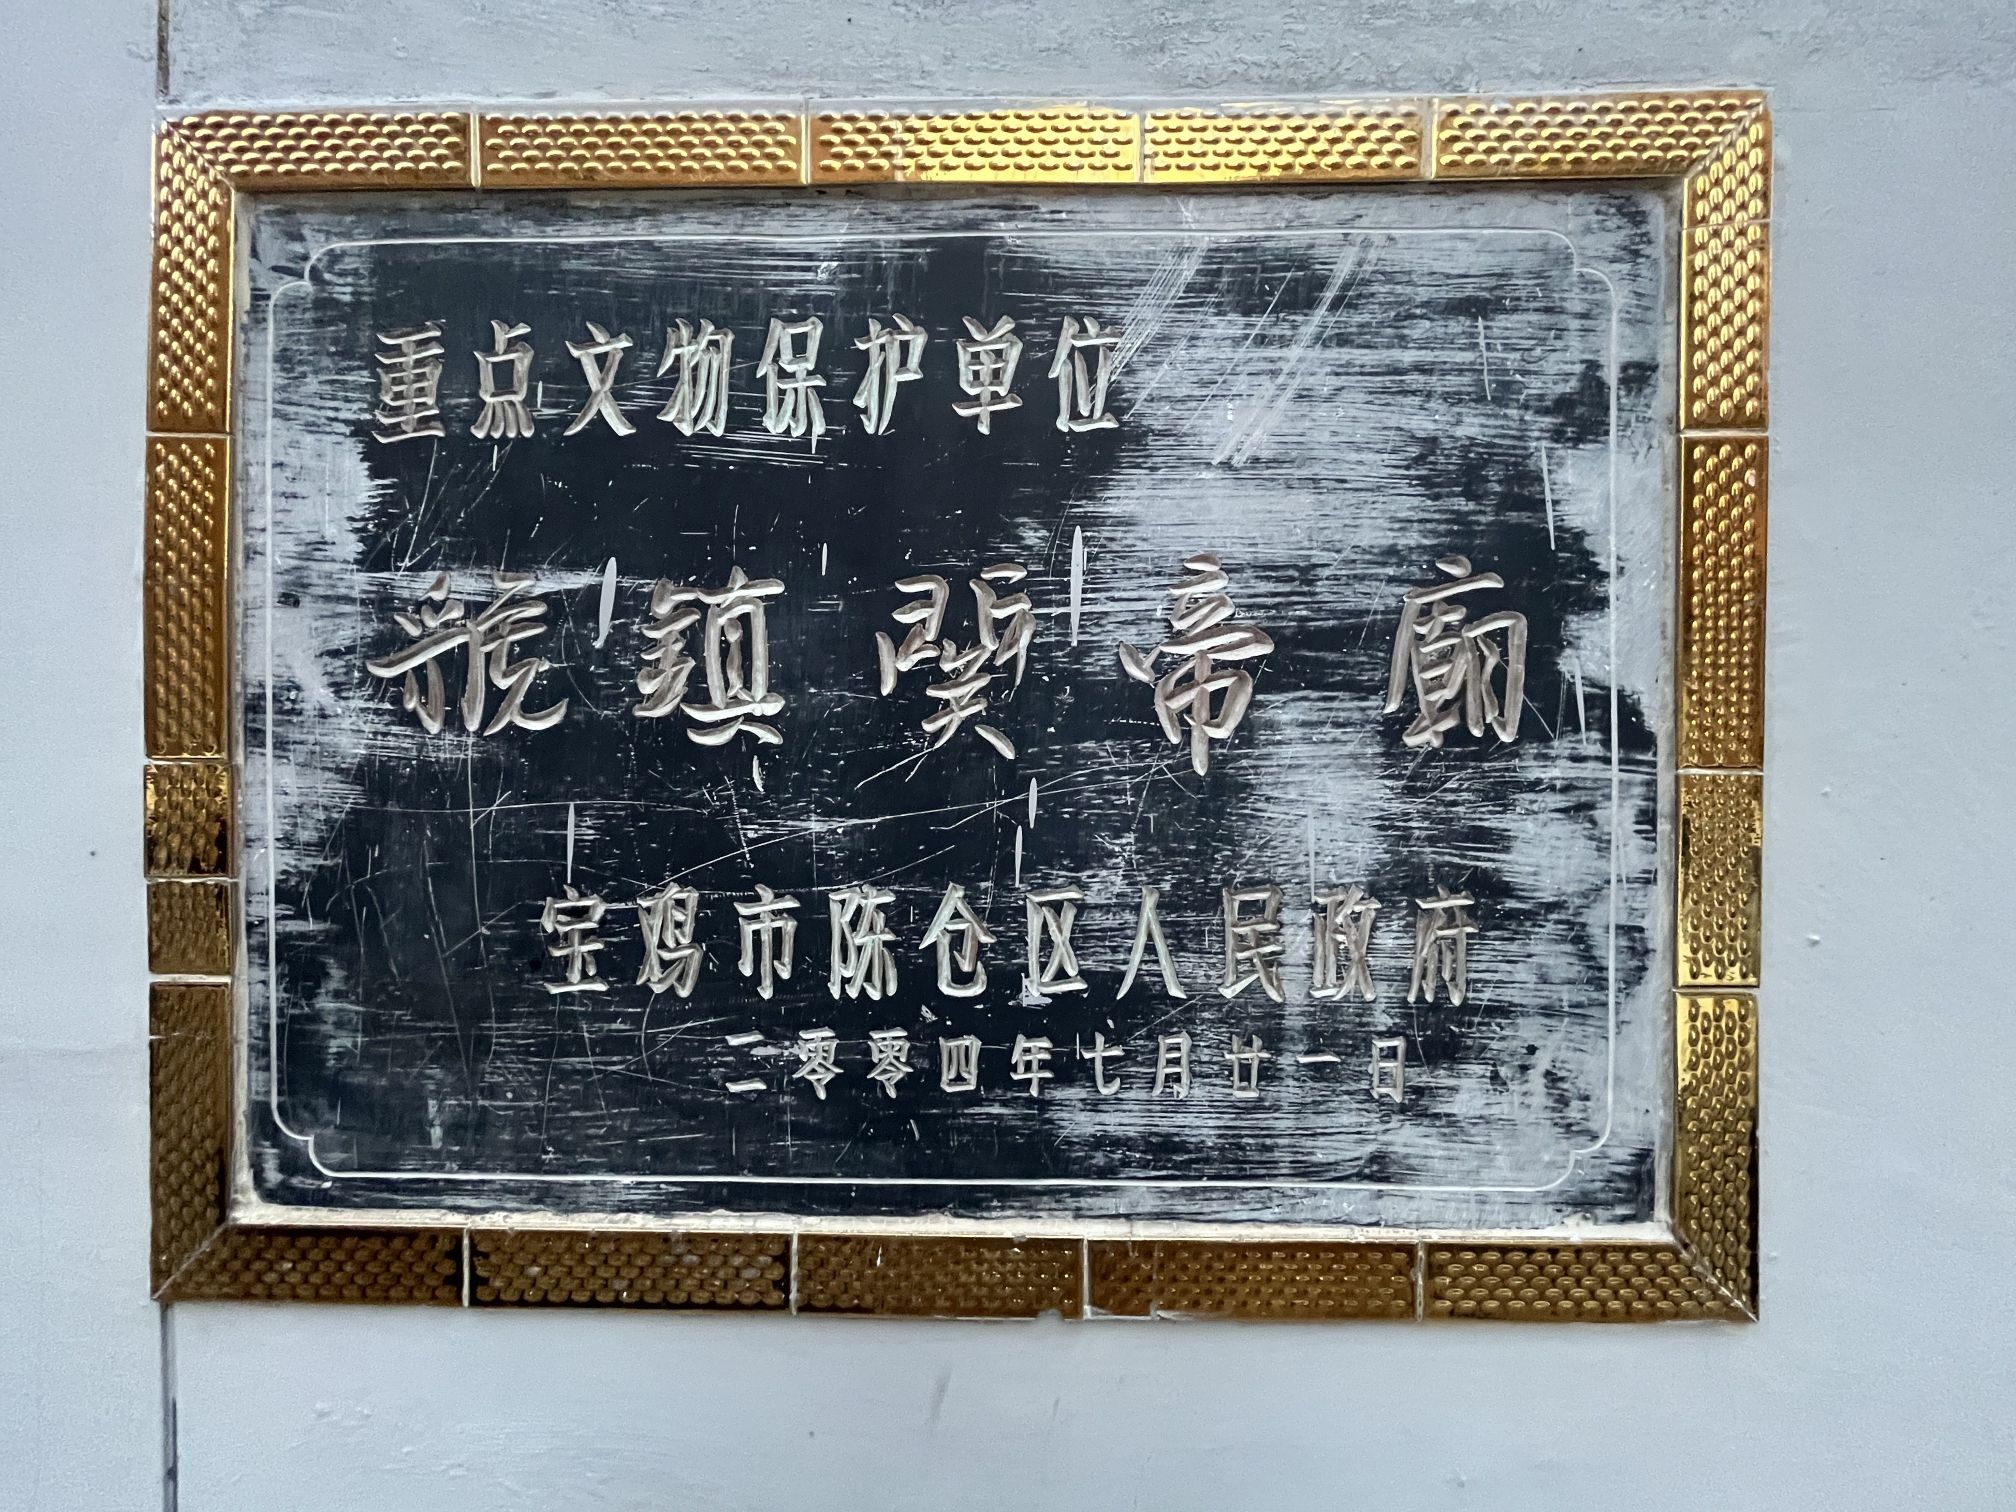 重点文物保护单位
虢鎮関帝廟
宝鸡市陈仓区人民政府
二零零四年七月廿一日